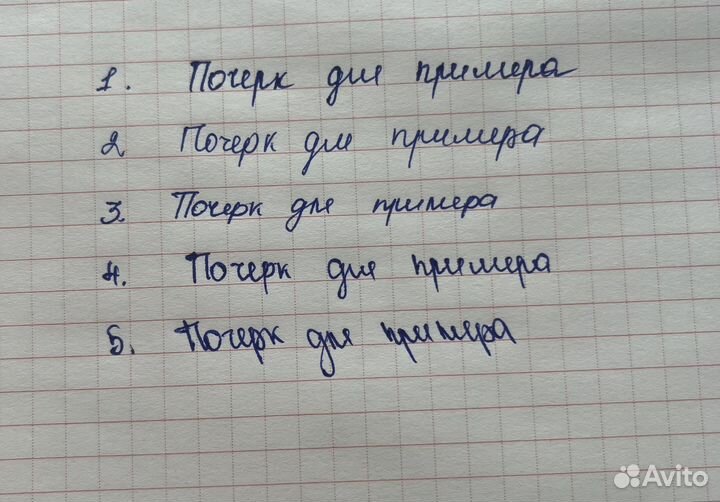 1. Почерк для примера
2 Почерк для примера
3. Почерк для примера
4. Почерк для примера
5. Почерк для примера
Avito